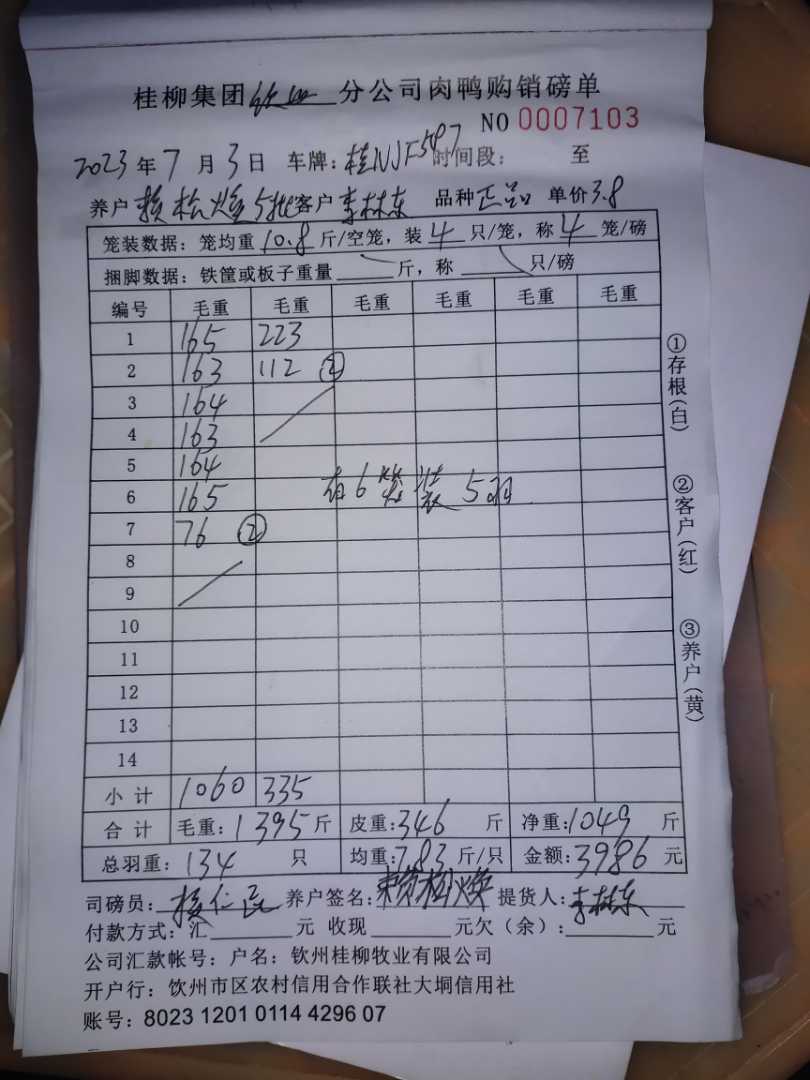 桂柳集团钦州分公司肉鸭购销磅单
NO 0007103
2023年7月3日 车牌:桂NJF597 时间段: 至
养户赖松焕5批客户李林东 品种正品 单价3.8
笼装数据:笼均重10.8斤/空笼,装4只/笼,称4笼/磅
捆脚数据:铁筐或板子重量____斤,称____只/磅
编号 毛重 毛重 毛重 毛重 毛重 毛重
1 165 223
2 163 112 ②
3 164
4 163
5 164
6 165 有6笼装5羽
7 76 ②
8
9
10
11
12
13
14
小计 1060 335
合计 毛重:1395斤 皮重:346斤 净重:1049斤
总羽重:134只 均重:7.83斤/只 金额:3986元
司磅员: 养户签名:赖松焕 提货人:李林东
付款方式:汇____元 收现____元欠(余):____元
公司汇款帐号:户名:钦州桂柳牧业有限公司
开户行:钦州市区农村信用合作联社大垌信用社
账号:8023 1201 0114 4296 07
①存根(白)
②客户(红)
③养户(黄)